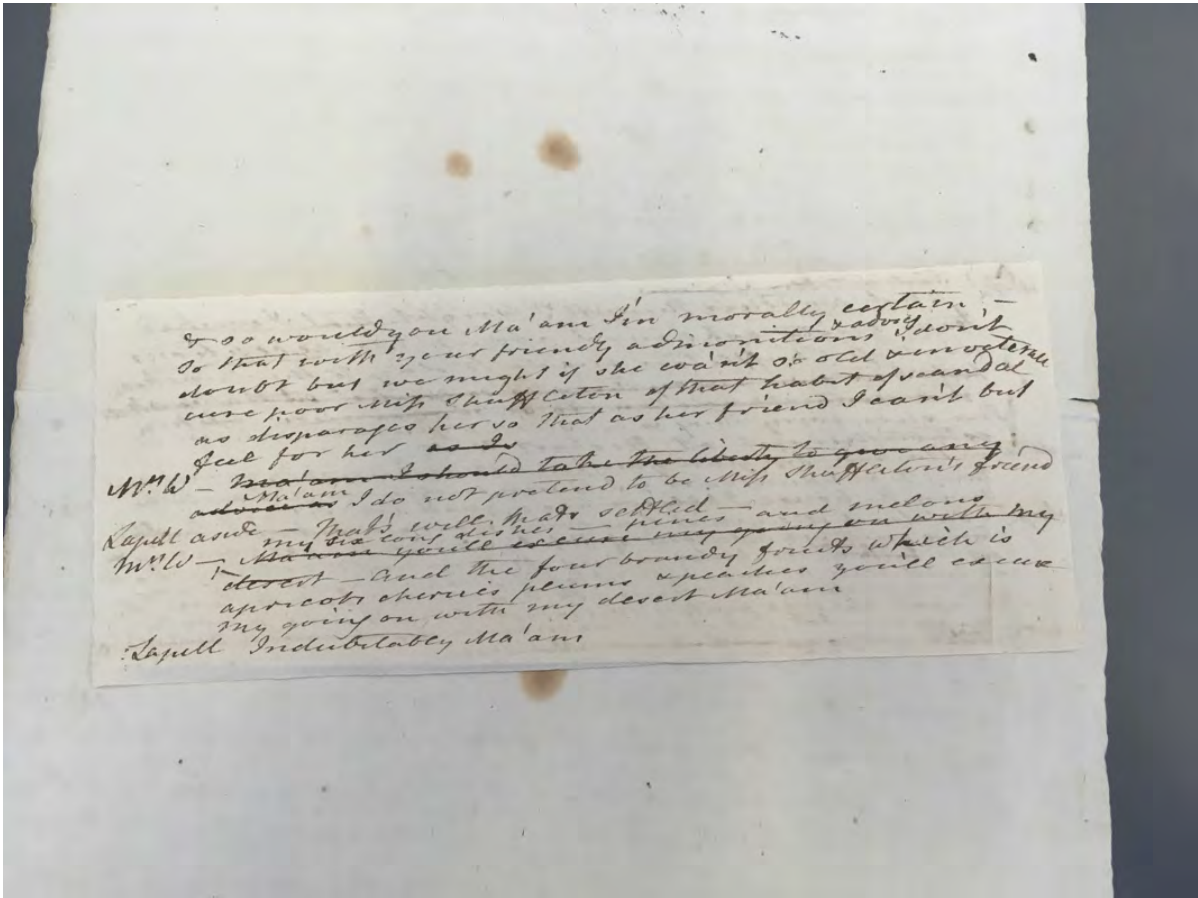 & so would you Ma'am I'm morally certain –
& advice
so that with your friendly admonitions I don't
doubt but we might if she wasn't so old & inveterate
cure poor Miss Shuffleton of that habit of scandal
as disparages her so that as her friend I can't but
feel for her as I
Mrs W – Ma'am I should take the liberty to give any
Ma'am
advice as I do not pretend to be Miss Shuffleton's friend
Lapell aside – That's well, that's settled
my six long dishes – pines – and melons
Mrs W – Ma'am you'll excuse my going on with my
desert – and the four brandy fruits which is
apricots cherries plums & peaches you'll excuse
my going on with my desert Ma'am
Lapell Indubitably Ma'am